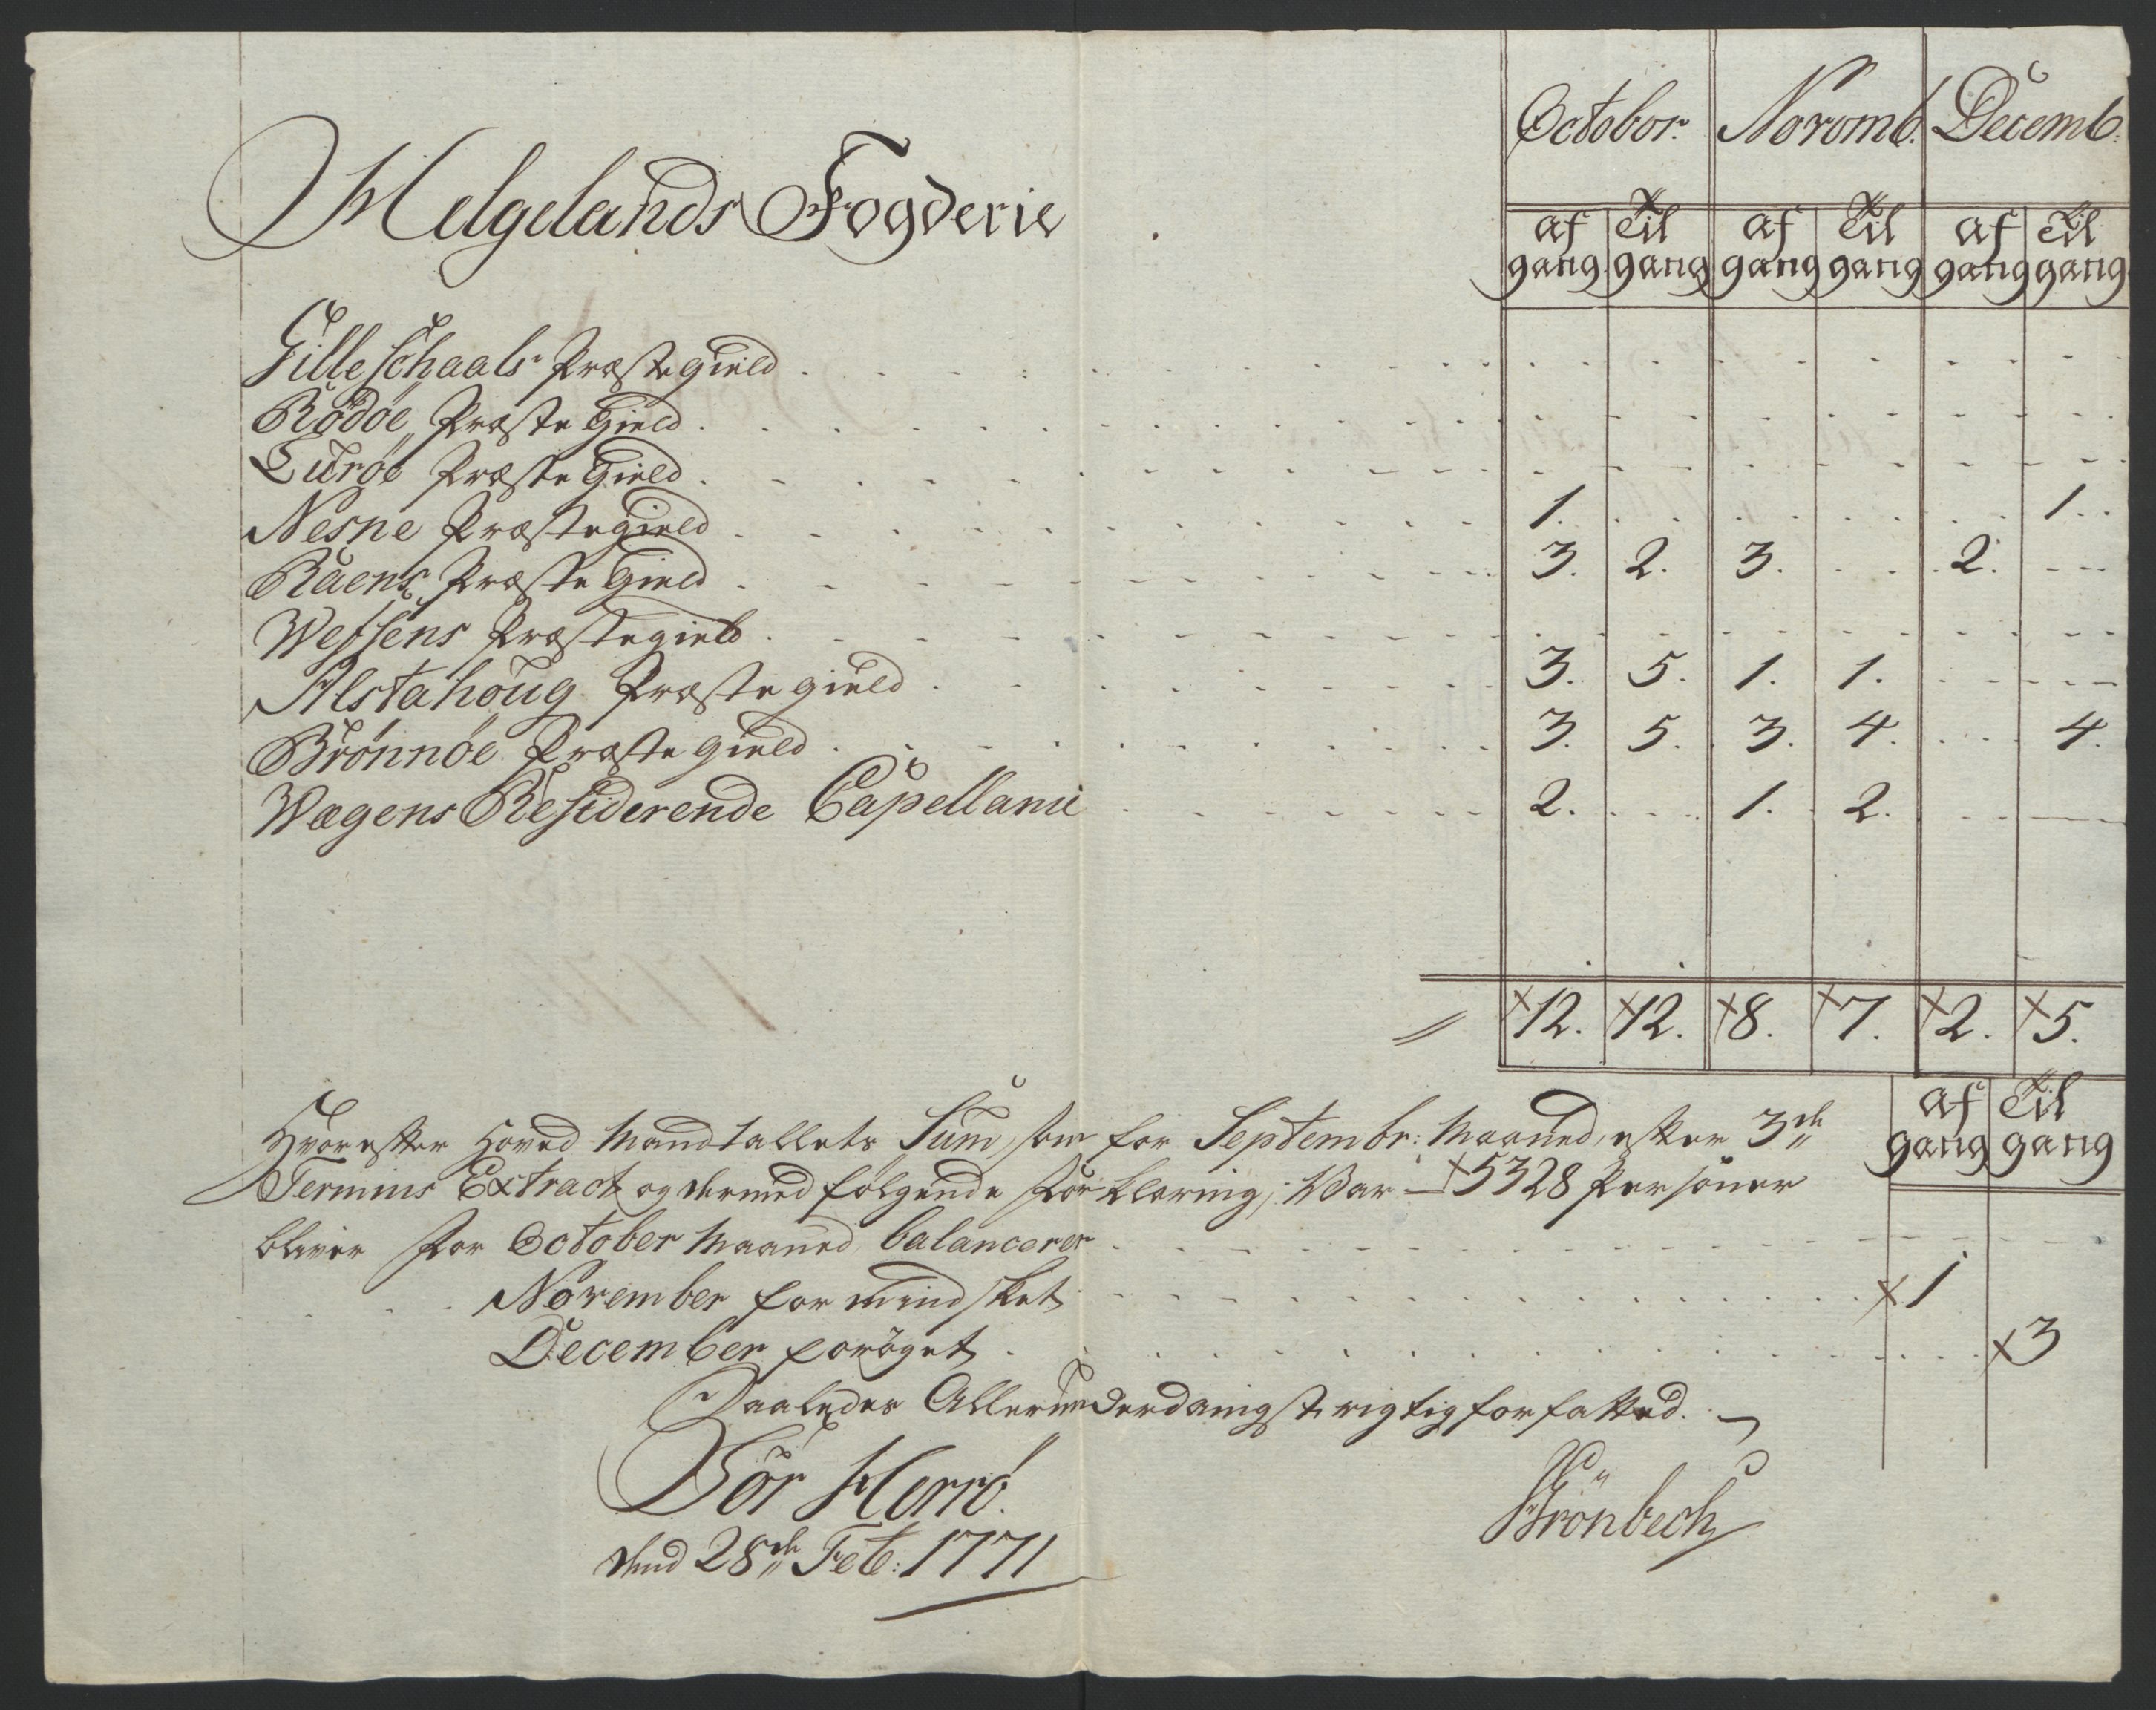 October. Novemb. Decemb:
Helgelands Fogderie
af gang. Til gang af gang Til gang af gang Til gang
Gilleschaals Præstegield . . . . . .
Rödöe Præste Gield . . . . . .
Luröe Præste Gield . . . . . .
Nesne Præstegield 1. . . . . 1.
Raens Præste Gield 3. 2. 3. . 2. .
Wefsens Præstegield . . . . . .
Alstahoug Præstegield 3. 5. 1. 1. . .
Brönnöe Præste gield 3. 5. 3. 4. . 4.
Wægens Residerende Capellanie 2. . 1. 2. . .
12. 12. 8. 7. 2. 5.
af gang Til gang
Hvorefter Hoved Mandtallets Sum, som for Septembr: Maaned, efter 3de
Termins Extract og dermed følgende Forklaring, Var - 5328 Personer
bliver for October Maaned balancerer
November formindsket 1
December forøget 3
Saaledes Allerunderdanigst rigtig forfatted.
Sör Herrö.
dend 28de Feb: 1771
Brönbech